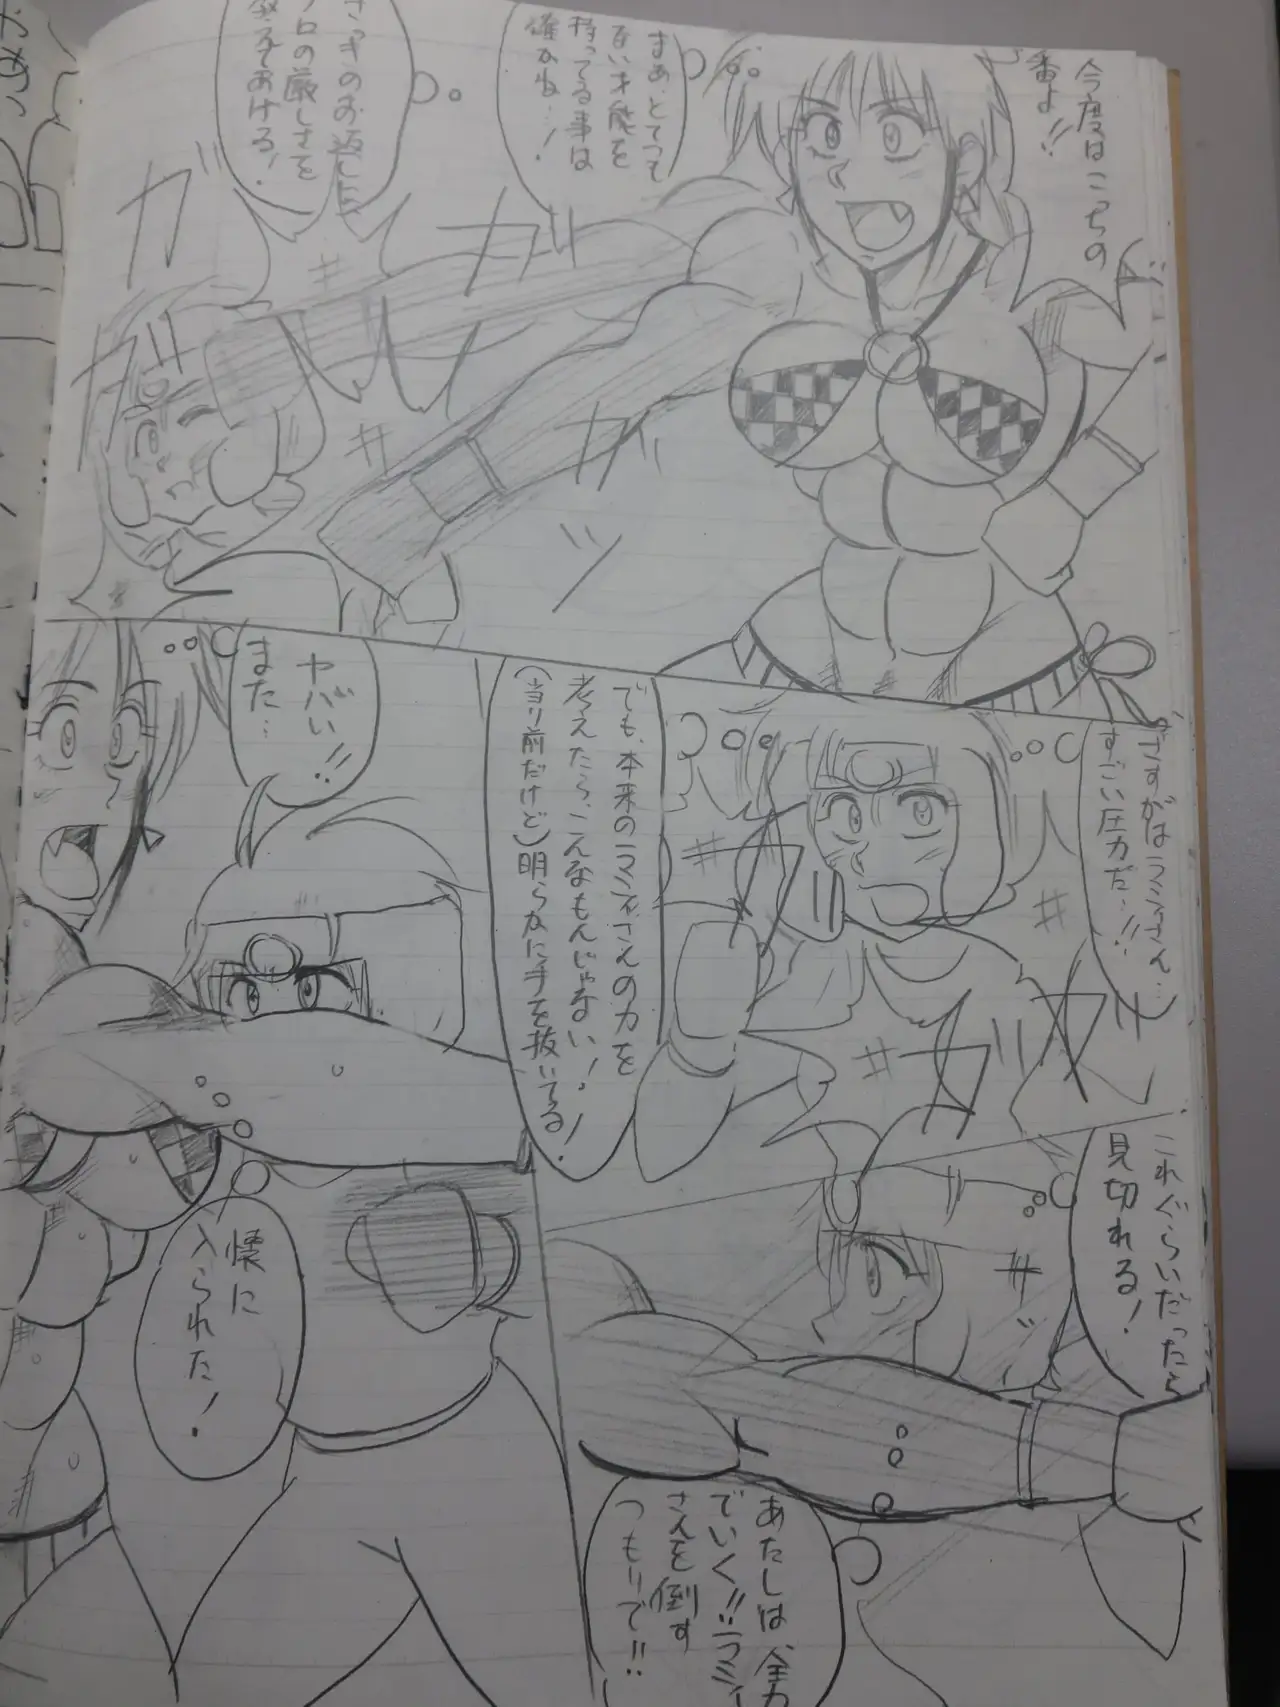 今度はこっちの
番よ!!
まぁ、とてつも
ない才能を
持ってる事は
確かね…!
さっきのお返しに
プロの厳しさを
教えてあげる!
ガ
ガ
ガ
ガ
ッ
さすがはラミィさん…
すごい圧力だ…!!
でも、本来のラミィさんの力を
考えたら、こんなもんじゃない!
(当り前だけど)明らかに手を抜いてる!
ヤバい!!
また…
ガ
ガ
ガ
これぐらいだったら
見切れる!
あたしは、全力
でいく!!ラミィ
さんを倒す
つもりで!!
懐に
入られた!